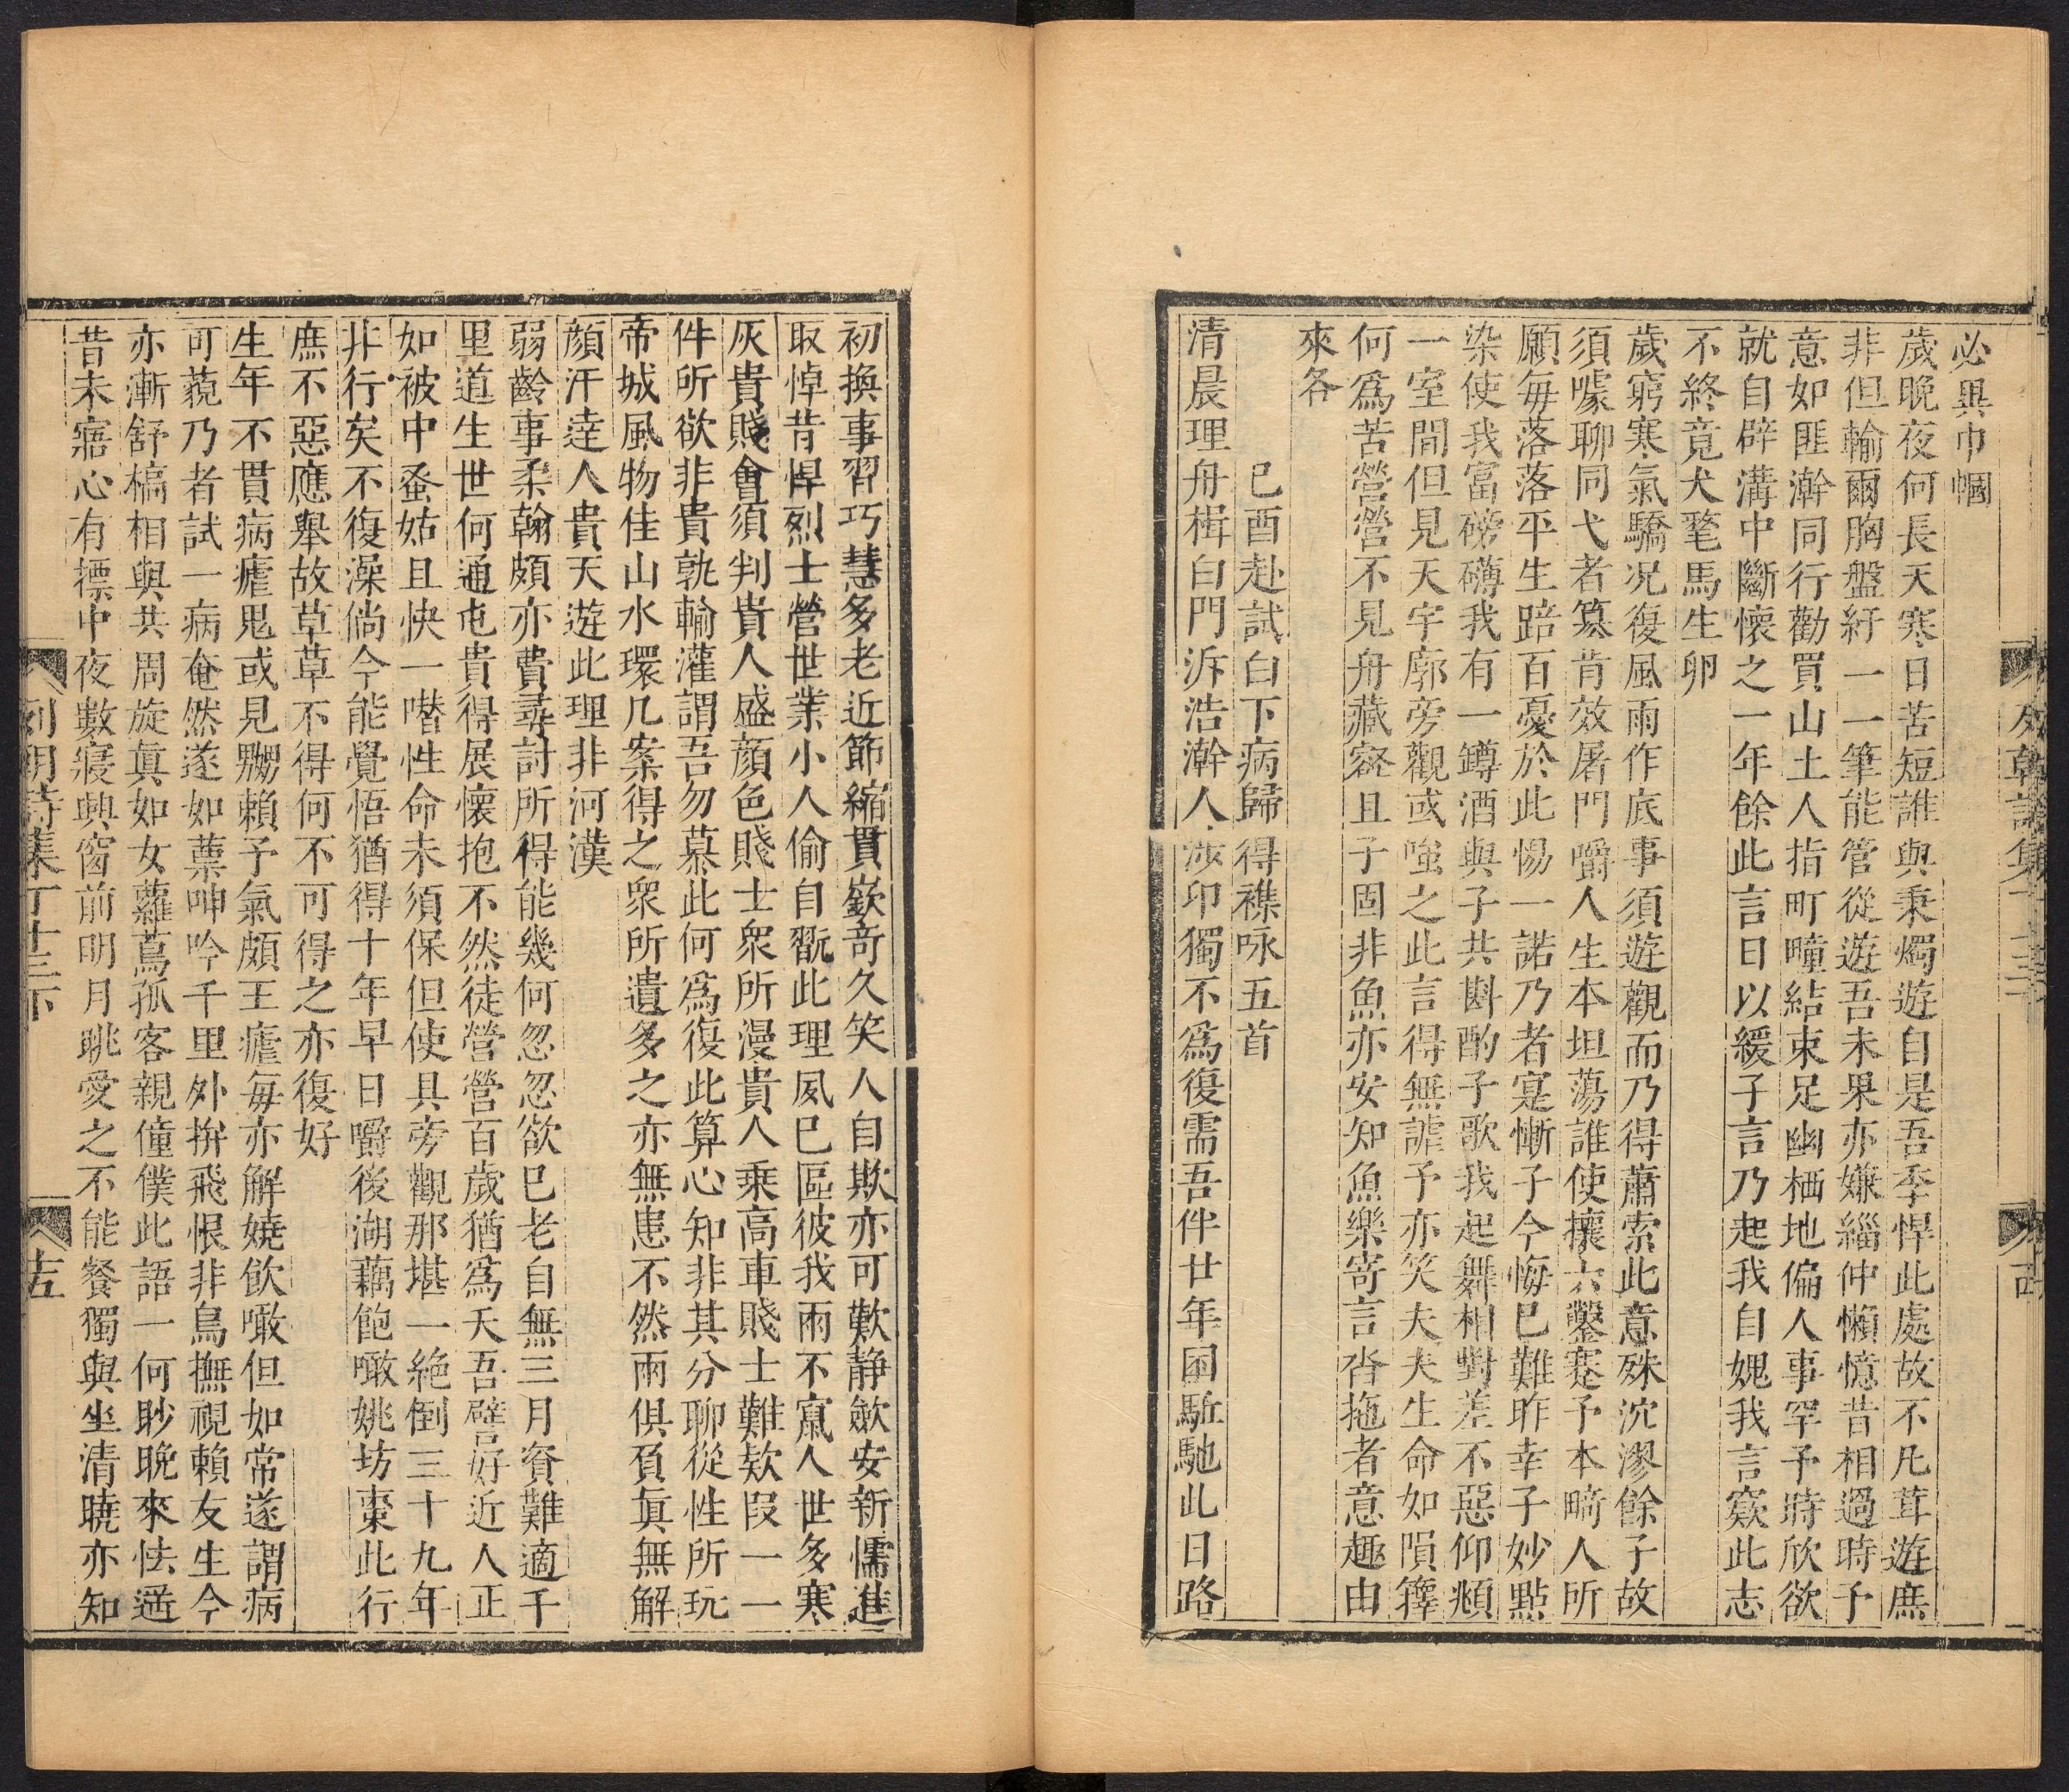 必與巾幗
歲晚夜何長天寒日苦短誰與秉燭遊自是吾季悍此處故不凡茸遊庶
非但輸爾胸盤紆一一筆能管從遊吾未果亦嫌緇仲懶憶昔相過時予
意如匪澣同行勸買山土人指町畽結束足幽栖地偏人事罕予時欣欲
就自辟溝中斷懷之一年餘此言日以緩子言乃起我自媿我言窽此志
不終竟犬毣馬生卵
歲窮寒氣驕况復風雨作底事須遊觀而乃得蕭索此意殊沉漻餘子故
須噱聊同弋者篡肯效屠門嚼人生本坦蕩誰使攘六鑿蹇予本畸人所
願每落落平生踣百憂於此惕一諾乃者寔慚子今悔已難昨幸子妙點
染使我富磅礴我有一罇酒與子共斟酌子歌我起舞相對差不惡仰頫
一室間但見天宇廓旁觀或嗤之此言得無謔予亦笑夫夫生命如隕籜
何爲苦營營不見舟藏密且子固非魚亦安知魚樂寄言沓拖者意趣由
來各
巳酉赴試白下病歸得襍咏五首
清晨理舟楫白門泝浩澣人涉卬獨不爲復需吾伴廿年困駈馳此日路
初換事習巧慧多老近節縮貫嶔奇久笑人自欺亦可歎静歛安新懦進
取悼昔悍烈士營世業小人偷自翫此理夙巳區彼我兩不竄人世多寒
灰貴賤會須判貴人盛顔色賤士衆所漫貴人乗高車賤士難欵段一一
件所欲非貴孰輸灌謂吾勿慕此何爲復此算心知非其分聊從性所玩
帝城風物佳山水環几案得之衆所遺多之亦無患不然兩俱負眞無解
顔汗達人貴天遊此理非河漢
弱齡事柔翰頗亦費尋討所得能幾何忽忽欲巳老自無三月資難適千
里道生世何通屯貴得展懷抱不然徒營營百歲猶爲夭吾譬好近人正
如被中蚤姑且快一噆性命未須保但使具旁觀那堪一絶倒三十九年
非行矣不復澡倘今能覺悟猶得十年早日嚼後湖藕飽噉姚坊棗此行
庶不惡應舉故草草不得何不可得之亦復好
生年不貫病瘧鬼或見嬲賴予氣頗王瘧每亦解嬈飲噉但如常遂謂病
可藐乃者試一病奄然遂如蔈呻吟千里外拚飛恨非鳥撫視賴友生今
亦漸舒槁相與共周旋眞如女蘿蔦孤客親僮僕此語一何眇晩來怯遥
昔未寤心有摽中夜數寢興窗前明月眺愛之不能餐獨與坐清曉亦知
列朝詩集丁十三下
十五